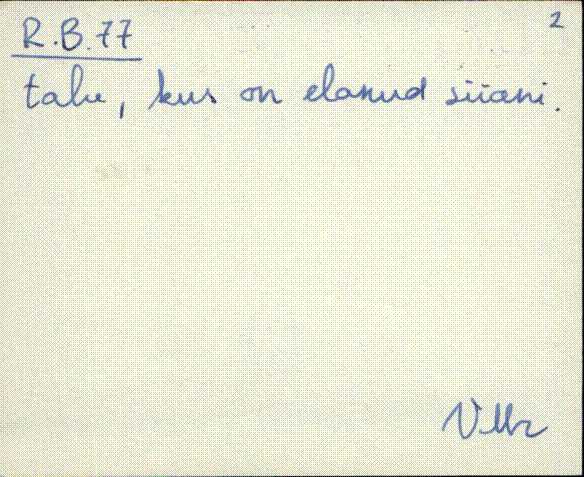 R.B.77 2
talu, kus on elanud siiani.